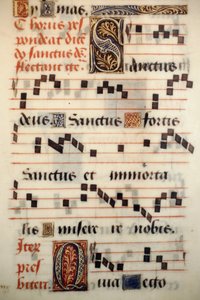 Chorus res
pondeat dicẽ
do sanctus &
flectant etc.
Sanctus
deus Sanctus fortis
Sanctus et immorta
lis misere re nobis.
Iter
pres
biteri.
Quia e